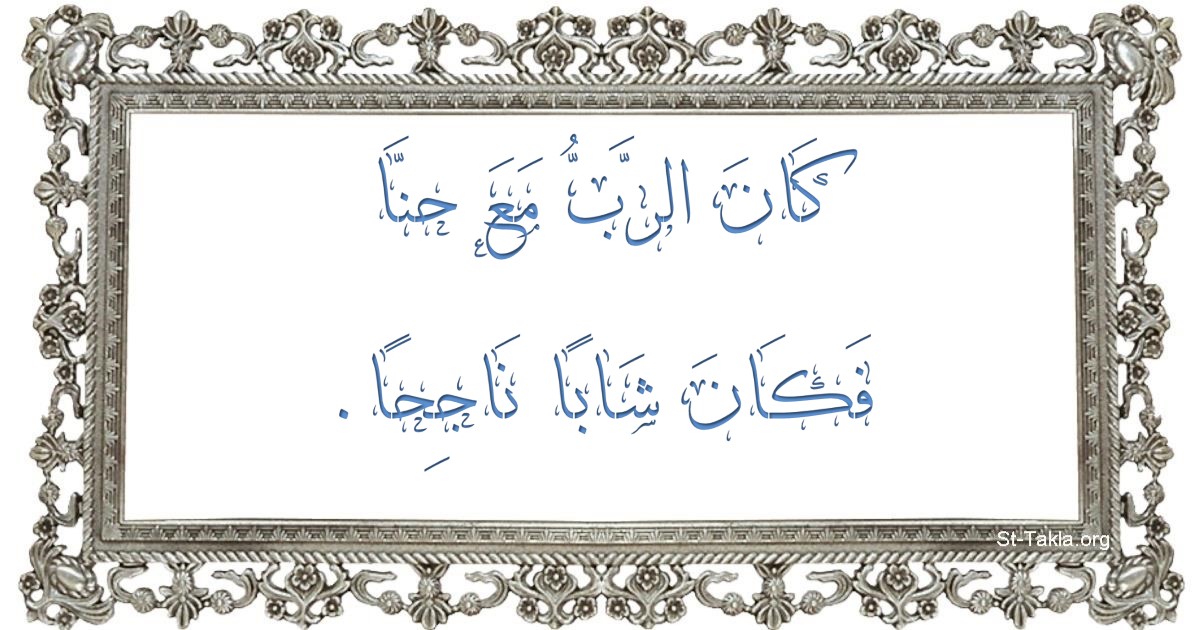 كَانَ الرَّبُّ مَعَ حنَّا
فَكَانَ شَابًا نَاجِحًا .
St-Takla.org